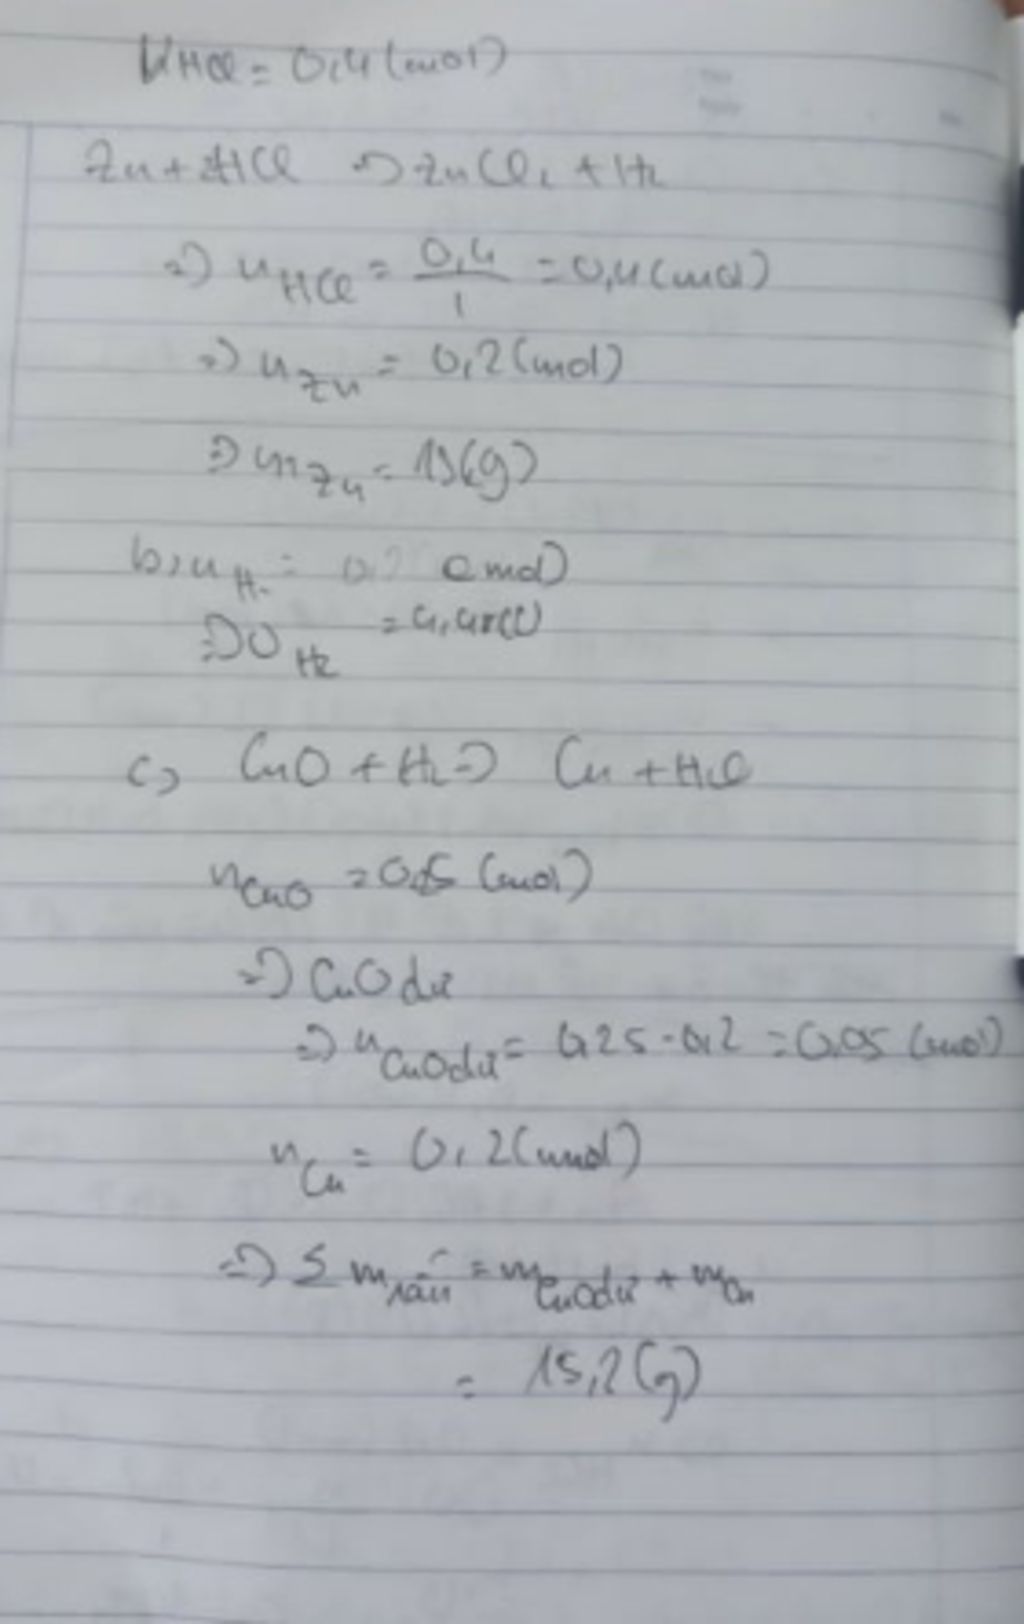 nHCl = 0,4 (mol)
Zn + 2HCl => ZnCl2 + H2
=> nHCl = 0,4/1 = 0,4 (mol)
=> nZn = 0,2 (mol)
=> mZn = 13(g)
b, nH2 = 0,2 (mol)
=> VH2 = 4,48(l)
c, CuO + H2 => Cu + H2O
nCuO = 0,25 (mol)
=> CuO dư
=> nCuO dư = 0,25 - 0,2 = 0,05 (mol)
nCu = 0,2 (mol)
=> Σ m rắn = mCuO dư + mCu
= 15,2 (g)